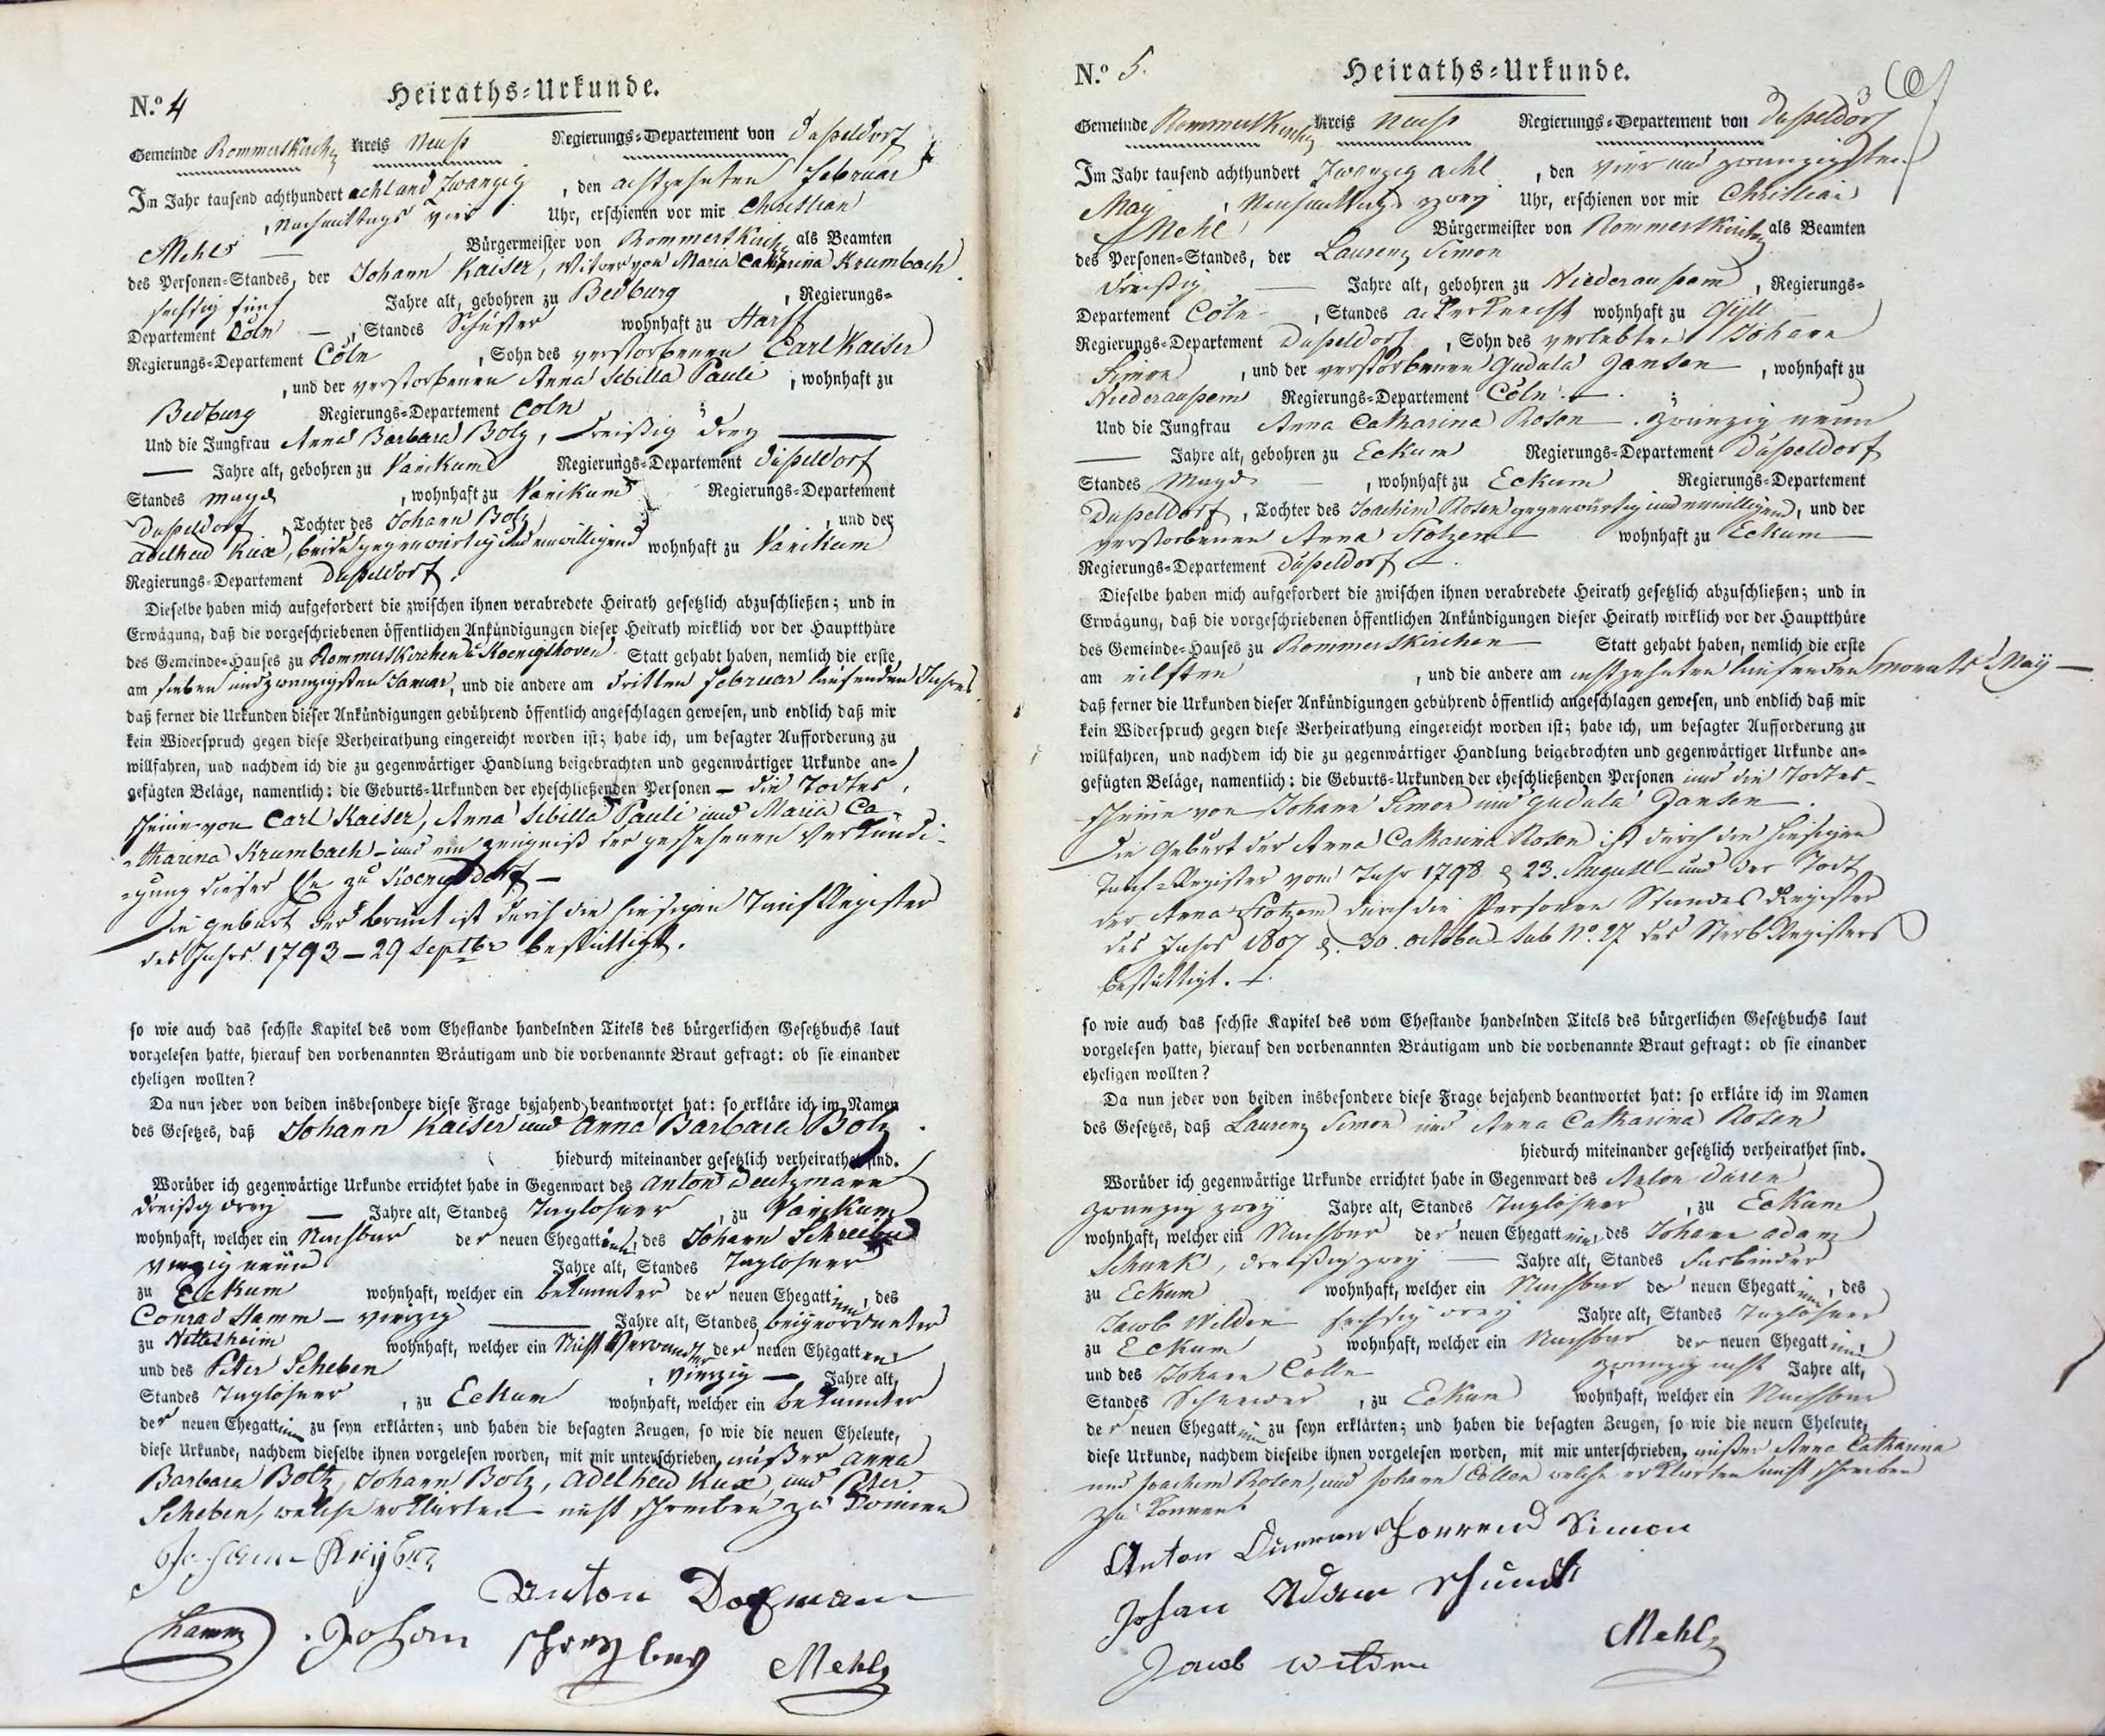 N.º 4
Heiraths-Urkunde.
Gemeinde Rommerskirchen Kreis Neuß Regierungs-Departement von Dußeldorf
Im Jahr tausend achthundert acht und Zwanzig, den achtzehnten Februar
, Nachmittags vier Uhr, erschienen vor mir Christian
Mehls Bürgermeister von Rommerskirchen als Beamten
des Personen-Standes, der Johann Kaiser, Witwer von Maria Catharina Krumbach
sechszig fünf Jahre alt, gebohren zu Bedburg, Regierungs-
Departement Cöln —, Standes Schuster wohnhaft zu Harff
Regierungs-Departement Cöln, Sohn des verstorbenen Carl Kaiser
, und der verstorbenen Anna Sibilla Pauli, wohnhaft zu
Bedburg Regierungs-Departement Coln ;
Und die Jungfrau Anna Barbara Bolz, dreißig drey
— Jahre alt, gebohren zu Vanikum Regierungs-Departement Düßeldorf
Standes Magd, wohnhaft zu Vanikum Regierungs-Departement
Dußeldorf, Tochter des Johann Bolz, und der
Adelheid Kux, beide gegenwärtig und einwilligend wohnhaft zu Vanikum
Regierungs-Departement Dußeldorf.
Dieselbe haben mich aufgefordert die zwischen ihnen verabredete Heirath gesetzlich abzuschließen; und in
Erwägung, daß die vorgeschriebenen öffentlichen Ankündigungen dieser Heirath wirklich vor der Hauptthüre
des Gemeinde-Hauses zu Rommerskirchen & Koenigshoven Statt gehabt haben, nemlich die erste
am sieben und zwanzigsten Januar, und die andere am dritten Februar laufenden Jahres
daß ferner die Urkunden dieser Ankündigungen gebührend öffentlich angeschlagen gewesen, und endlich daß mir
kein Widerspruch gegen diese Verheirathung eingereicht worden ist; habe ich, um besagter Aufforderung zu
willfahren, und nachdem ich die zu gegenwärtiger Handlung beigebrachten und gegenwärtiger Urkunde an-
gefügten Beläge, namentlich: die Geburts-Urkunden der eheschließenden Personen — die Todtes
scheine von Carl Kaiser, Anna Sibilla Pauli und Maria Ca-
tharina Krumbach — und ein Zeugniß der geschehenen Verkündi-
gung dieser Ehe zu —
Die Geburt der Braut ist durch die hiesigen Tauf Register
des Jahrs 1793 — 29 Septbr bestättigt.
so wie auch das sechste Kapitel des vom Ehestande handelnden Titels des bürgerlichen Gesetzbuchs laut
vorgelesen hatte, hierauf den vorbenannten Bräutigam und die vorbenannte Braut gefragt: ob sie einander
eheligen wollten?
Da nun jeder von beiden insbesondere diese Frage bejahend beantwortet hat: so erkläre ich im Namen
des Gesetzes, daß Johann Kaiser und Anna Barbara Bolz
hiedurch miteinander gesetzlich verheirathet sind.
Worüber ich gegenwärtige Urkunde errichtet habe in Gegenwart des Anton Deutzmann
dreißig drey — Jahre alt, Standes Taglöhner, zu Vanikum
wohnhaft, welcher ein Nachbar der neuen Ehegattinn, des Johann Schreiber
vierzig neun Jahre alt, Standes Taglöhner
zu Eckum wohnhaft, welcher ein bekannter der neuen Ehegattinn, des
Conrad Hamm — vierzig — Jahre alt, Standes beigeordneter
zu Nettesheim wohnhaft, welcher ein Nicht Verwandter der neuen Ehegatten
und des Peter Scheben, vierzig — Jahre alt,
Standes Taglöhner, zu Eckum wohnhaft, welcher ein bekannter
der neuen Ehegattinn zu seyn erklärten; und haben die besagten Zeugen, so wie die neuen Eheleute,
diese Urkunde, nachdem dieselbe ihnen vorgelesen worden, mit mir unterschrieben, außer Anna
Barbara Boltz, Johann Bolz, Adelheid Kux, und Peter
Scheben, welche erklärten nicht schreiben zu können
Anton
Hamm Johan Mehls
N.º 5.
Heiraths-Urkunde.
Gemeinde Rommerskirchen Kreis Neuss Regierungs-Departement von Dußeldorf
Im Jahr tausend achthundert Zwanzig acht, den vier und zwanzigsten
May, Nachmittags zwey Uhr, erschienen vor mir Christian
Mehls Bürgermeister von Rommerskirchen als Beamten
des Personen-Standes, der Laurenz Simon
dreißig — Jahre alt, gebohren zu Niederaußem, Regierungs-
Departement Cöln, Standes Ackerknecht wohnhaft zu Gill
Regierungs-Departement Dußeldorf, Sohn des verlebten Johann
Simon, und der verstorbenen Gudula Jansen —, wohnhaft zu
Niederaußem Regierungs-Departement Cöln ;
Und die Jungfrau Anna Catharina Rosen — zwanzig neun
— Jahre alt, gebohren zu Eckum Regierungs-Departement Dußeldorf
Standes Magd —, wohnhaft zu Eckum Regierungs-Departement
Dußeldorf, Tochter des Joachim Rosen gegenwärtig und einwilligend, und der
verstorbenen Anna Flotzem wohnhaft zu Eckum
Regierungs-Departement Dußeldorf.
Dieselbe haben mich aufgefordert die zwischen ihnen verabredete Heirath gesetzlich abzuschließen; und in
Erwägung, daß die vorgeschriebenen öffentlichen Ankündigungen dieser Heirath wirklich vor der Hauptthüre
des Gemeinde-Hauses zu Rommerskirchen — Statt gehabt haben, nemlich die erste
am eilften, und die andere am achtzehnten laufenden Monats May —
daß ferner die Urkunden dieser Ankündigungen gebührend öffentlich angeschlagen gewesen, und endlich daß mir
kein Widerspruch gegen diese Verheirathung eingereicht worden ist; habe ich, um besagter Aufforderung zu
willfahren, und nachdem ich die zu gegenwärtiger Handlung beigebrachten und gegenwärtiger Urkunde an-
gefügten Beläge, namentlich: die Geburts-Urkunden der eheschließenden Personen und die Todtes-
scheine von Johann Simon und Gudula Jansen —.
Die Geburt der Anna Catharina Rosen ist durch die hiesigen
Tauf-Register vom Jahr 1798 d 23. August und der Todt
der Anna Flotzem durch die Personen Standes Register
des Jahrs 1807 d. 30. october sub Nº. 27 des Sterb Registers
bestättigt.
so wie auch das sechste Kapitel des vom Ehestande handelnden Titels des bürgerlichen Gesetzbuchs laut
vorgelesen hatte, hierauf den vorbenannten Bräutigam und die vorbenannte Braut gefragt: ob sie einander
eheligen wollten?
Da nun jeder von beiden insbesondere diese Frage bejahend beantwortet hat: so erkläre ich im Namen
des Gesetzes, daß Laurenz Simon und Anna Catharina Rosen
hiedurch miteinander gesetzlich verheirathet sind.
Worüber ich gegenwärtige Urkunde errichtet habe in Gegenwart des Anton
zwanzig zwey Jahre alt, Standes Taglöhner, zu Eckum
wohnhaft, welcher ein Nachbar der neuen Ehegattinn, des Johann Adam
Schunk, dreißig zwey — Jahre alt, Standes Fasbinder
zu Eckum wohnhaft, welcher ein Nachbar der neuen Ehegattinn, des
Jacob Wilden sechszig drey Jahre alt, Standes Taglöhner
zu Eckum wohnhaft, welcher ein Nachbar der neuen Ehegattinn
und des Johann Cöllen, zwanzig acht Jahre alt,
Standes Schneider, zu Eckum wohnhaft, welcher ein Nachbar
der neuen Ehegattinn zu seyn erklärten; und haben die besagten Zeugen, so wie die neuen Eheleute,
diese Urkunde, nachdem dieselbe ihnen vorgelesen worden, mit mir unterschrieben, außer Anna Catharina
und Joachim Rosen, und Johann Cöllen welche erklärten nicht schreiben
zu können.
Anton Simon
Johan Adam Schunck
Jacob Wilden Mehls